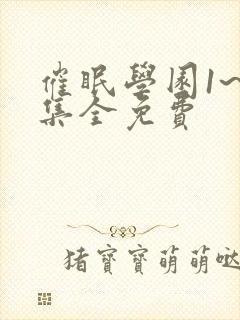 催眠學園1~
集全免費
猪寶寶萌萌哒